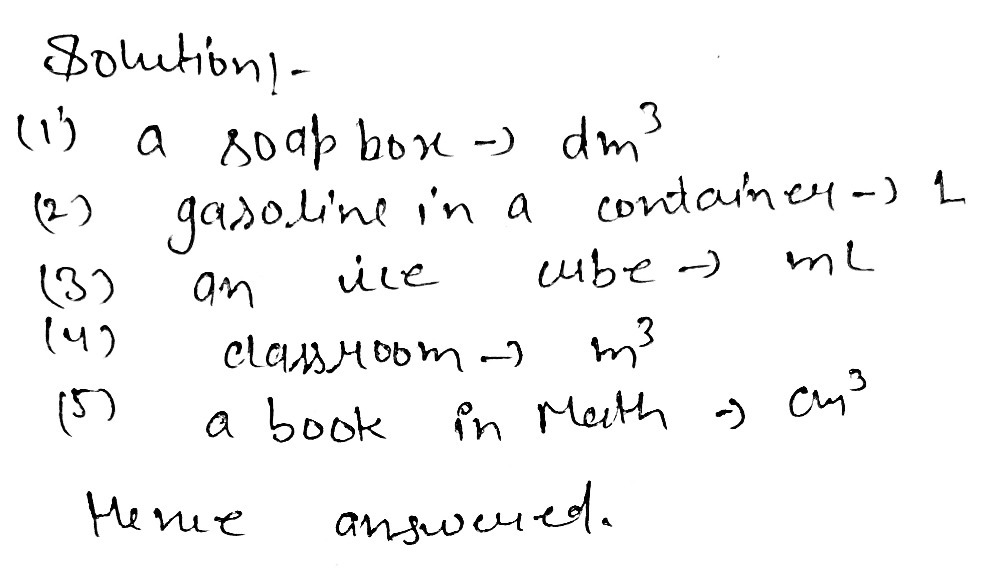 Solution:-
(1) a soap box → dm³
(2) gasoline in a container → L
(3) an ice cube → mL
(4) classroom → m³
(5) a book in Math → cm³
Hence answered.